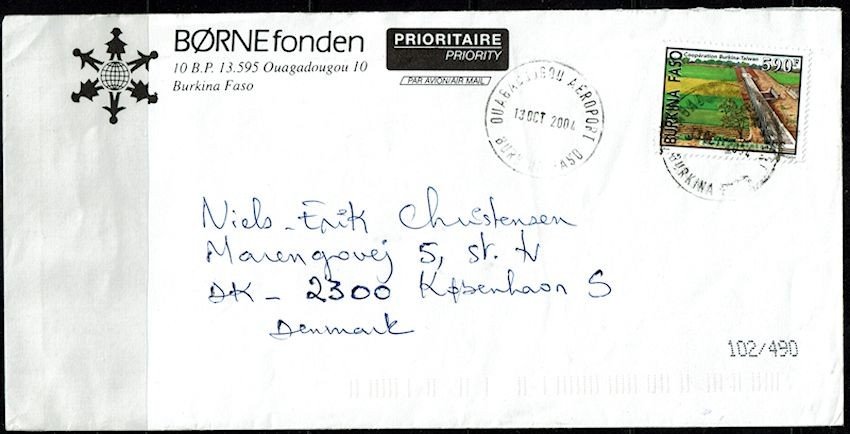 BØRNEfonden
10 B.P. 13.595 Ouagadougou 10
Burkina Faso
PRIORITAIRE
PRIORITY
PAR AVION/AIR MAIL
OUAGADOUGOU AEROPORT
13 OCT 2004
BURKINA FASO
Coopération Burkina-Taiwan
590F
BURKINA FASO
2004
BURKINA
Niels-Erik Christensen
Marengovej 5, st. tv
DK - 2300 København S
Denmark
102/490